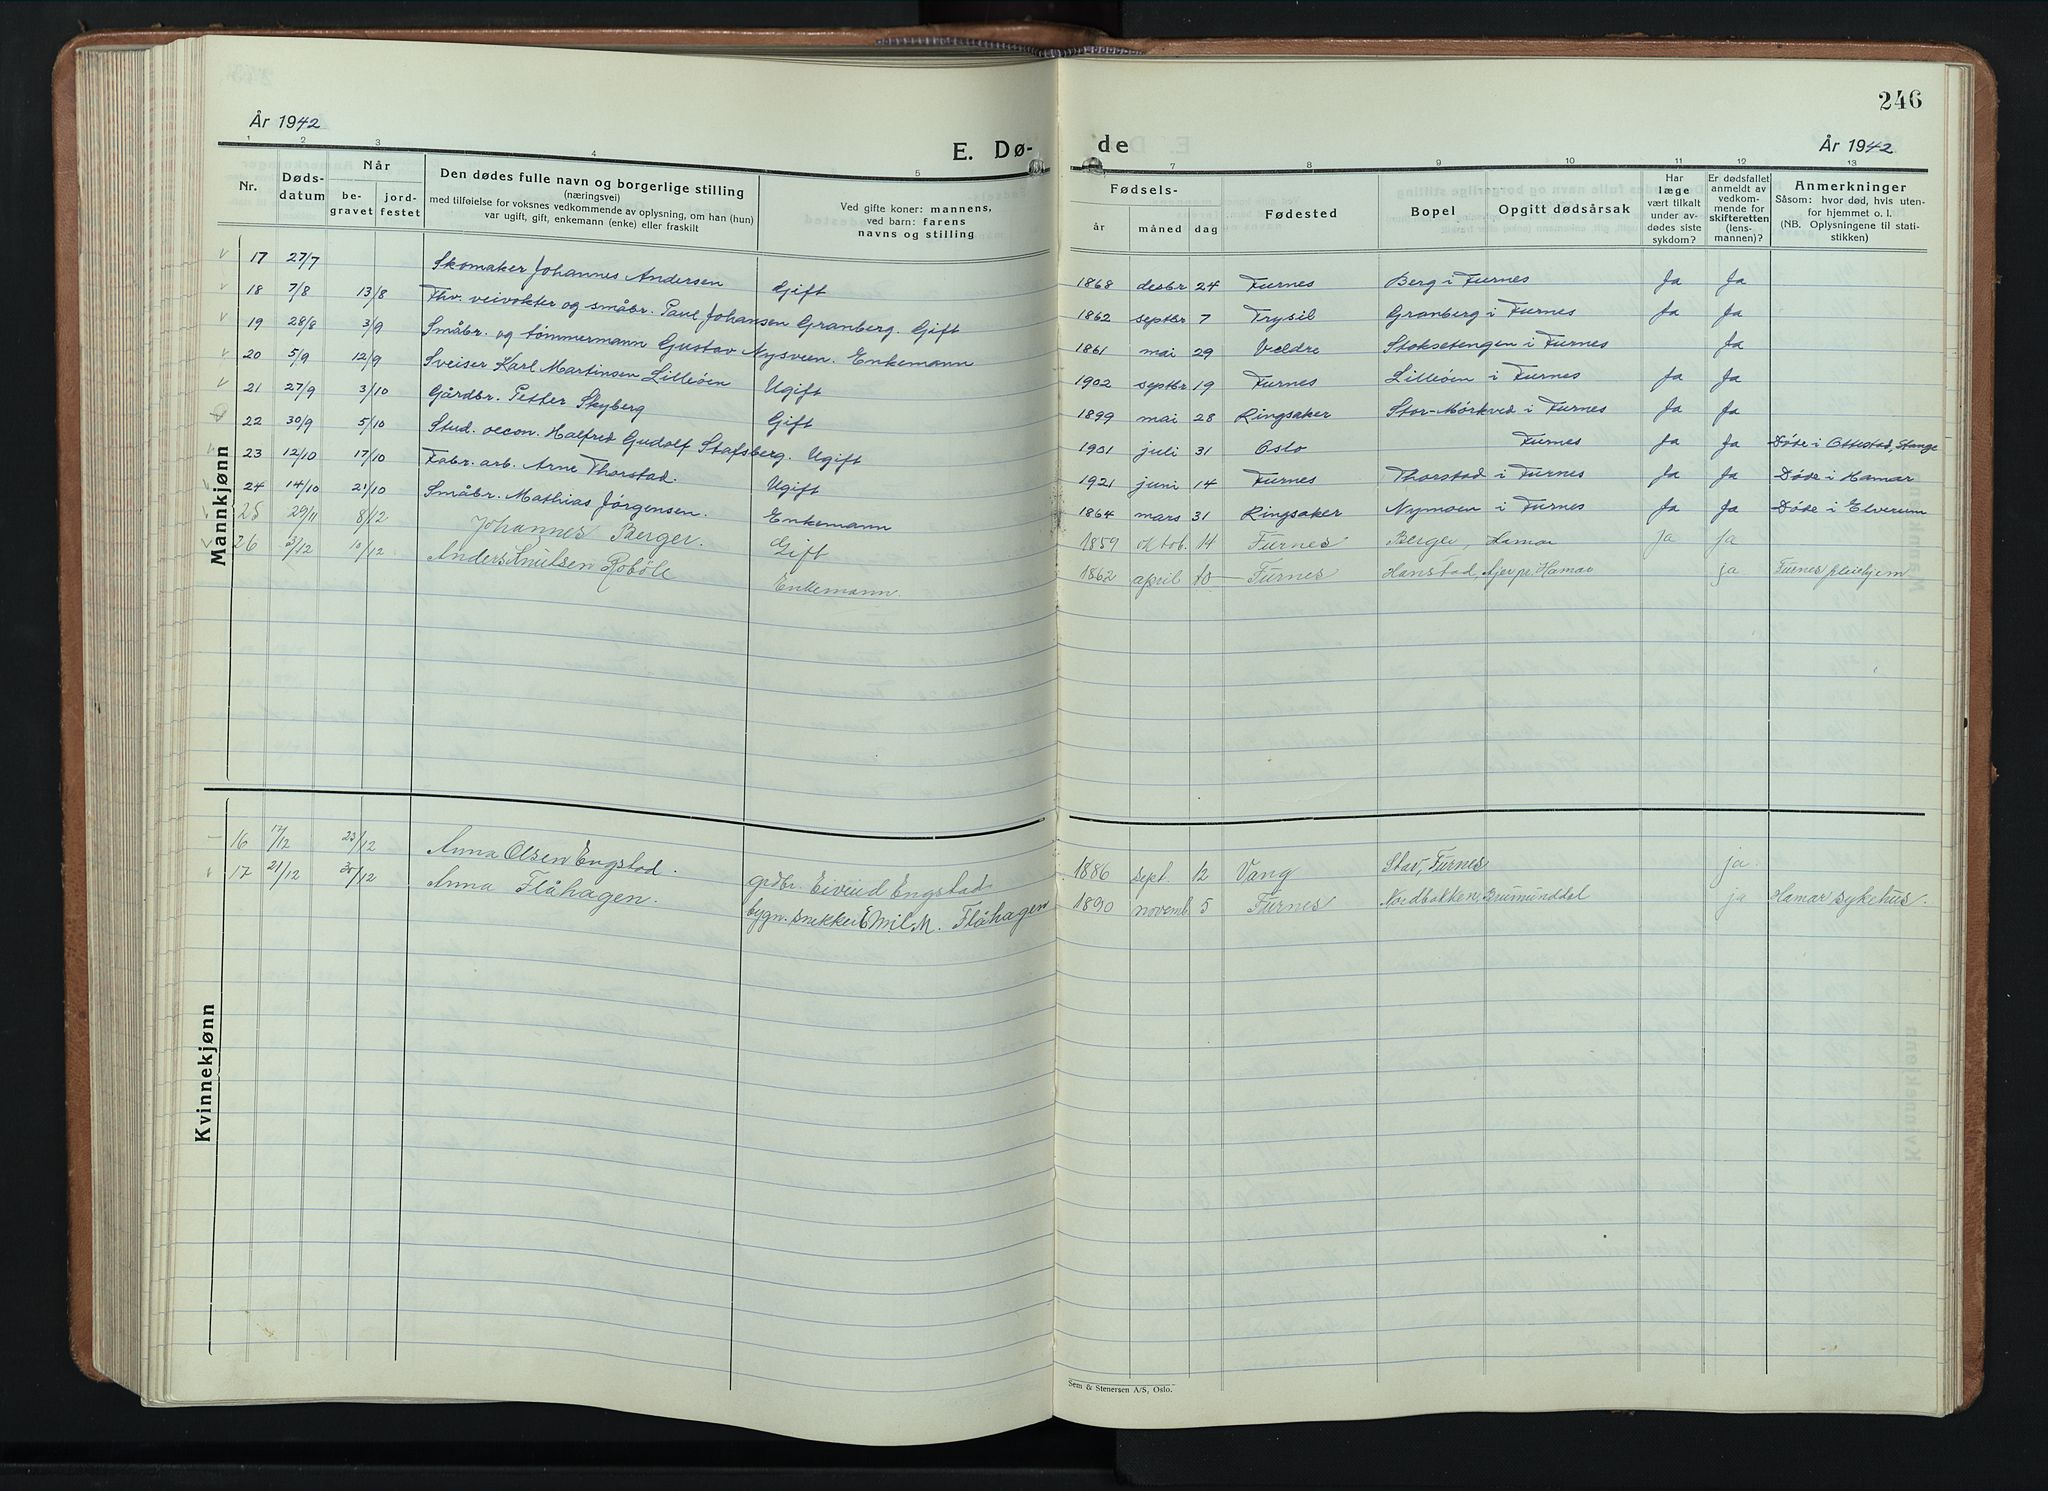 246
År 1942
E. Dø-
de
År 1942
1 2 3 4 5 7 8 9 10 11 12 13
Nr.
Døds-
datum
Når
be-
gravet
jord-
festet
Den dødes fulle navn og borgerlige stilling
(næringsvei)
med tilføielse for voksnes vedkommende av oplysning, om han (hun)
var ugift, gift, enkemann (enke) eller fraskilt
Ved gifte koner: mannens,
ved barn: farens
navns og stilling
Fødsels-
år måned dag
Fødested
Bopel
Opgitt dødsårsak
Har
læge
vært tilkalt
under av-
dødes siste
sykdom?
Er dødsfallet
anmeldt av
vedkom-
mende for
skifteretten
(lens-
mannen)?
Anmerkninger
Såsom: hvor død, hvis uten-
for hjemmet o. l.
(NB. Oplysningene til stati-
stikken)
Mannkjønn
17 27/7 Skomaker Johannes Andersen Gift 1868 desbr 24 Furnes Berg i Furnes Ja Ja
18 7/8 13/8 Fhv. veivokter og småbr. Paul Johansen Granberg. Gift 1862 septbr 7 Trysil Granberg i Furnes Ja Ja
19 28/8 3/9 Småbr. og tømmermann Gustav Nysveen. Enkemann 1861 mai 29 Veldre Stoksetengen i Furnes Ja
20 5/9 12/9 Sveiser Karl Martinsen Lilleøen Ugift 1902 septbr 19 Furnes Lilleøen i Furnes Ja Ja
21 27/9 3/10 Gårdbr. Petter Skyberg Gift 1899 mai 28 Ringsaker Stor-Mørkved i Furnes Ja Ja
22 30/9 5/10 Stud. oecon. Halfred Gudolf Stafsberg. Ugift 1901 juli 31 Oslo Furnes Ja Ja Døde i Ottestad, Stange
23 12/10 17/10 Fabr. arb. Arne Thorstad. Ugift 1921 juni 14 Furnes Thorstad i Furnes Ja Ja Døde i Hamar
24 14/10 21/10 Småbr. Mathias Jørgensen. Enkemann 1864 mars 31 Ringsaker Nymoen i Furnes Ja Ja Døde i Elverum
25 29/11 8/12 Johannes Berger. Gift 1859 oktob. 14 Furnes Berger, Hamar ja ja
26 /12 10/12 Anders Knutsen Robøle Enkemann. 1862 april 10 Furnes Hanstad, Ajer pr. Hamar ja Furnes pleiehjem
Kvinnekjønn
16 17/12 23/12 Anna Olsen Engstad. grdbr. Eivind Engstad 1886 sept. 12 Vang Stav, Furnes ja.
17 21/12 30/12 Anna Flåhagen. bygn. snekker Emil M. Flåhagen 1890 novemb. 5 Furnes Nordbakken, Brumunddal ja Hamar sykehus.
Sem & Stenersen A/S, Oslo.